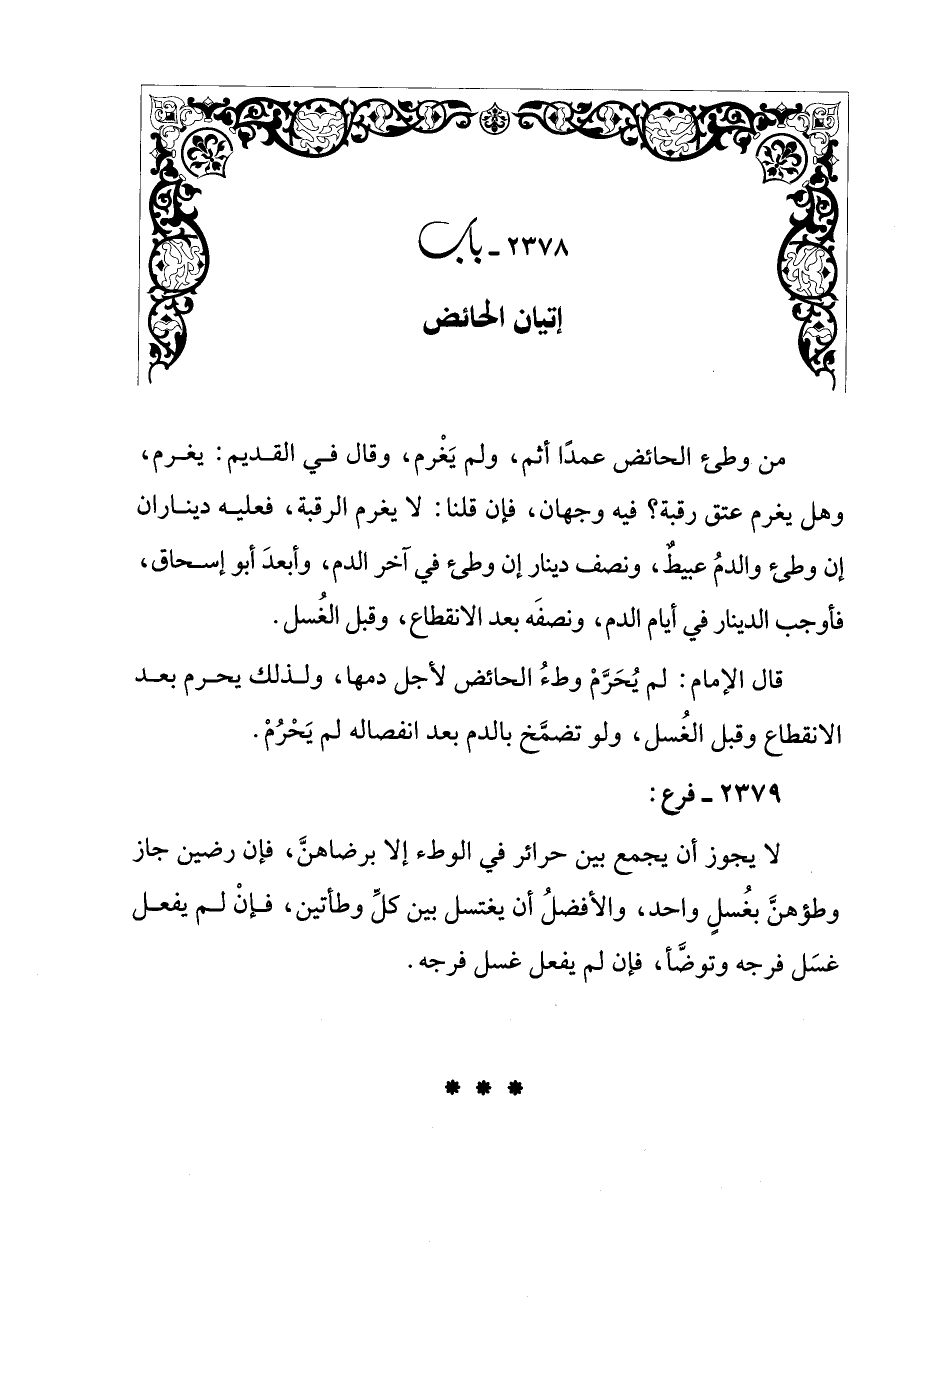 ٢٣٧٨ - باب
إتيان الحائض
من وطئ الحائض عمدًا أثم، ولم يَغْرم، وقال في القديم: يغرم،
وهل يغرم عتق رقبة؟ فيه وجهان، فإن قلنا: لا يغرم الرقبة، فعليه ديناران
إن وطئ والدمُ عبيطٌ، ونصف دينار إن وطئ في آخر الدم، وأبعدَ أبو إسحاق،
فأوجب الدينار في أيام الدم، ونصفَه بعد الانقطاع، وقبل الغُسل.
قال الإمام: لم يُحَرَّمْ وطءُ الحائض لأجل دمها، ولذلك يحرم بعد
الانقطاع وقبل الغُسل، ولو تضمَّخ بالدم بعد انفصاله لم يَحْرُمْ.
٢٣٧٩ - فرع:
لا يجوز أن يجمع بين حرائر في الوطء إلا برضاهنَّ، فإن رضين جاز
وطؤهنَّ بغُسلٍ واحد، والأفضلُ أن يغتسل بين كلِّ وطأتين، فإنْ لم يفعل
غسَل فرجه وتوضَّأ، فإن لم يفعل غسل فرجه.
* * *